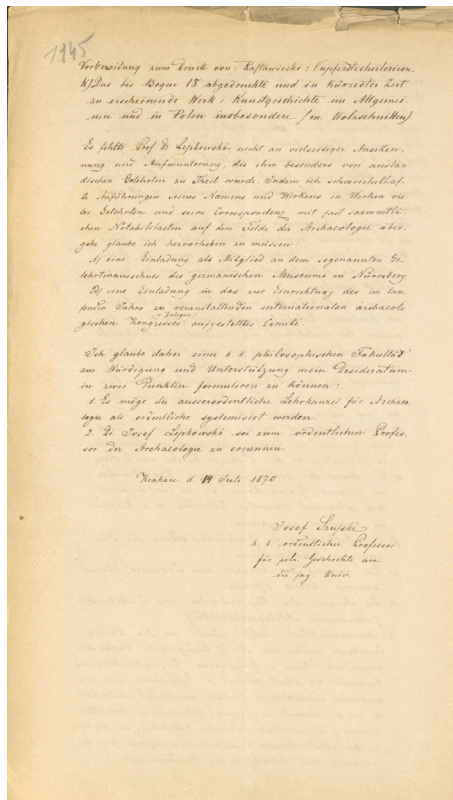 1945
Vorbereitung zum Druck von: Rastawiecki: Kupferstecherlexicon.
K) Das bis Bogen 18 abgedruckte und in kürzester Zeit
zu erscheinende Werk: Kunstgeschichte im Allgemei
nen und in Polen insbesondere (m. Holzschnitten)
Es fehlte Prof. Dr Lepkowski nicht an vielseitiger Anerken-
nung und Aufmunterung, die ihm besonders von auslän
dischen Gelehrten zu Theil wurde. Indem ich schmeichelhaf-
te Anführungen seines Namens und Wirkens in Werken vie
ler Gelehrten und seine Correspondenz mit fast sammtli-
chen Notabilitaeten auf dem Felde der Archaeologie über
gehe glaube ich hervorheben zu müssen:
A) eine Einladung als Mitglied an dem sogenannten Ge-
lehrtenausschuss des germanischen Museums in Nürnberg
B) eine Einladung in das zur Einrichtung des im lau-
fenden Jahre zu veranstaltenden internationalen archaeolo
gischen Kongresses in Bologna aufgestelltes Comité.
Ich glaube daher einer k. k. philosophischen Fakultät
zur Würdigung und Unterstützung mein Desideratum
in zwei Punkten formuliren zu können:
1. Es möge die ausserordentliche Lehrkanzel für Archaeo
logie als ordentliche systemisirt werden
2. Dr. Josef Lepkowski sei zum ordentlichen Profes-
sor der Archaeologie zu ernennen.
Krakau d. 14 Juli 1870
Josef Szujski
k. k. ordentlicher Professor
für poln. Geschichte an
der jag. Univ.